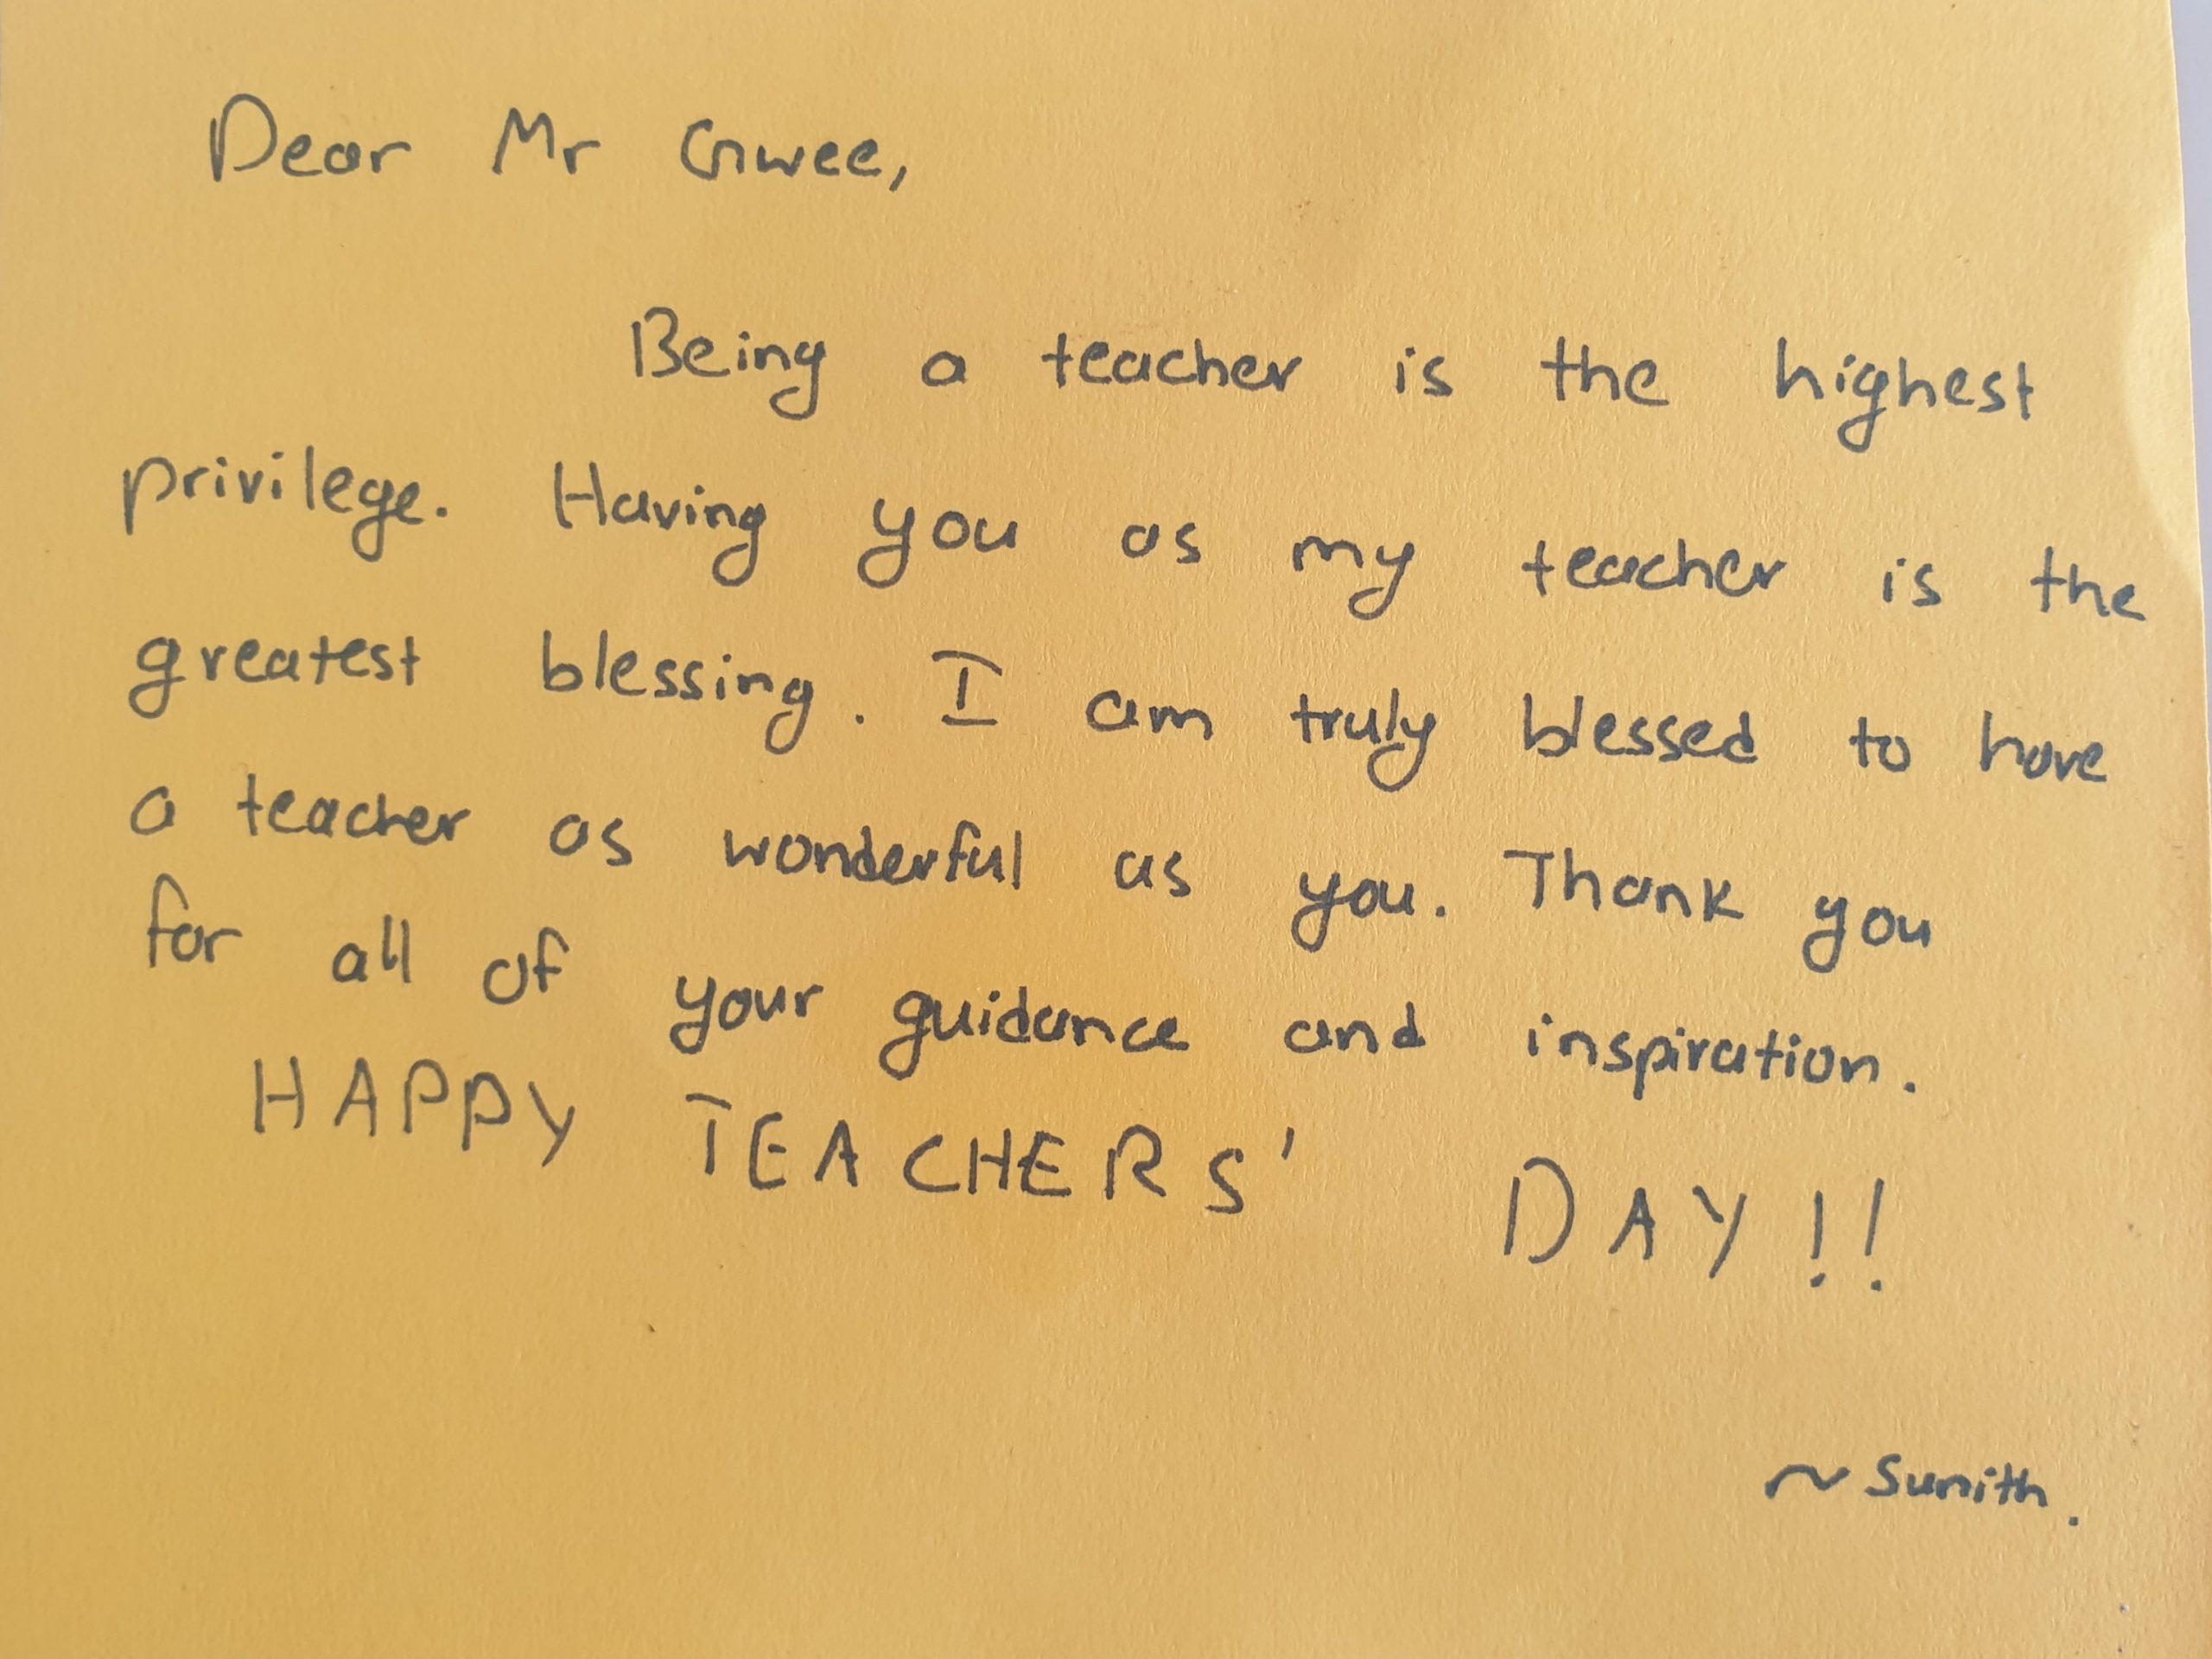 Dear Mr Gwee,
Being a teacher is the highest
privilege. Having you as my teacher is the
greatest blessing. I am truly blessed to have
a teacher as wonderful as you. Thank you
for all of your guidance and inspiration.
HAPPY TEACHERS' DAY!!
~ Sunith.